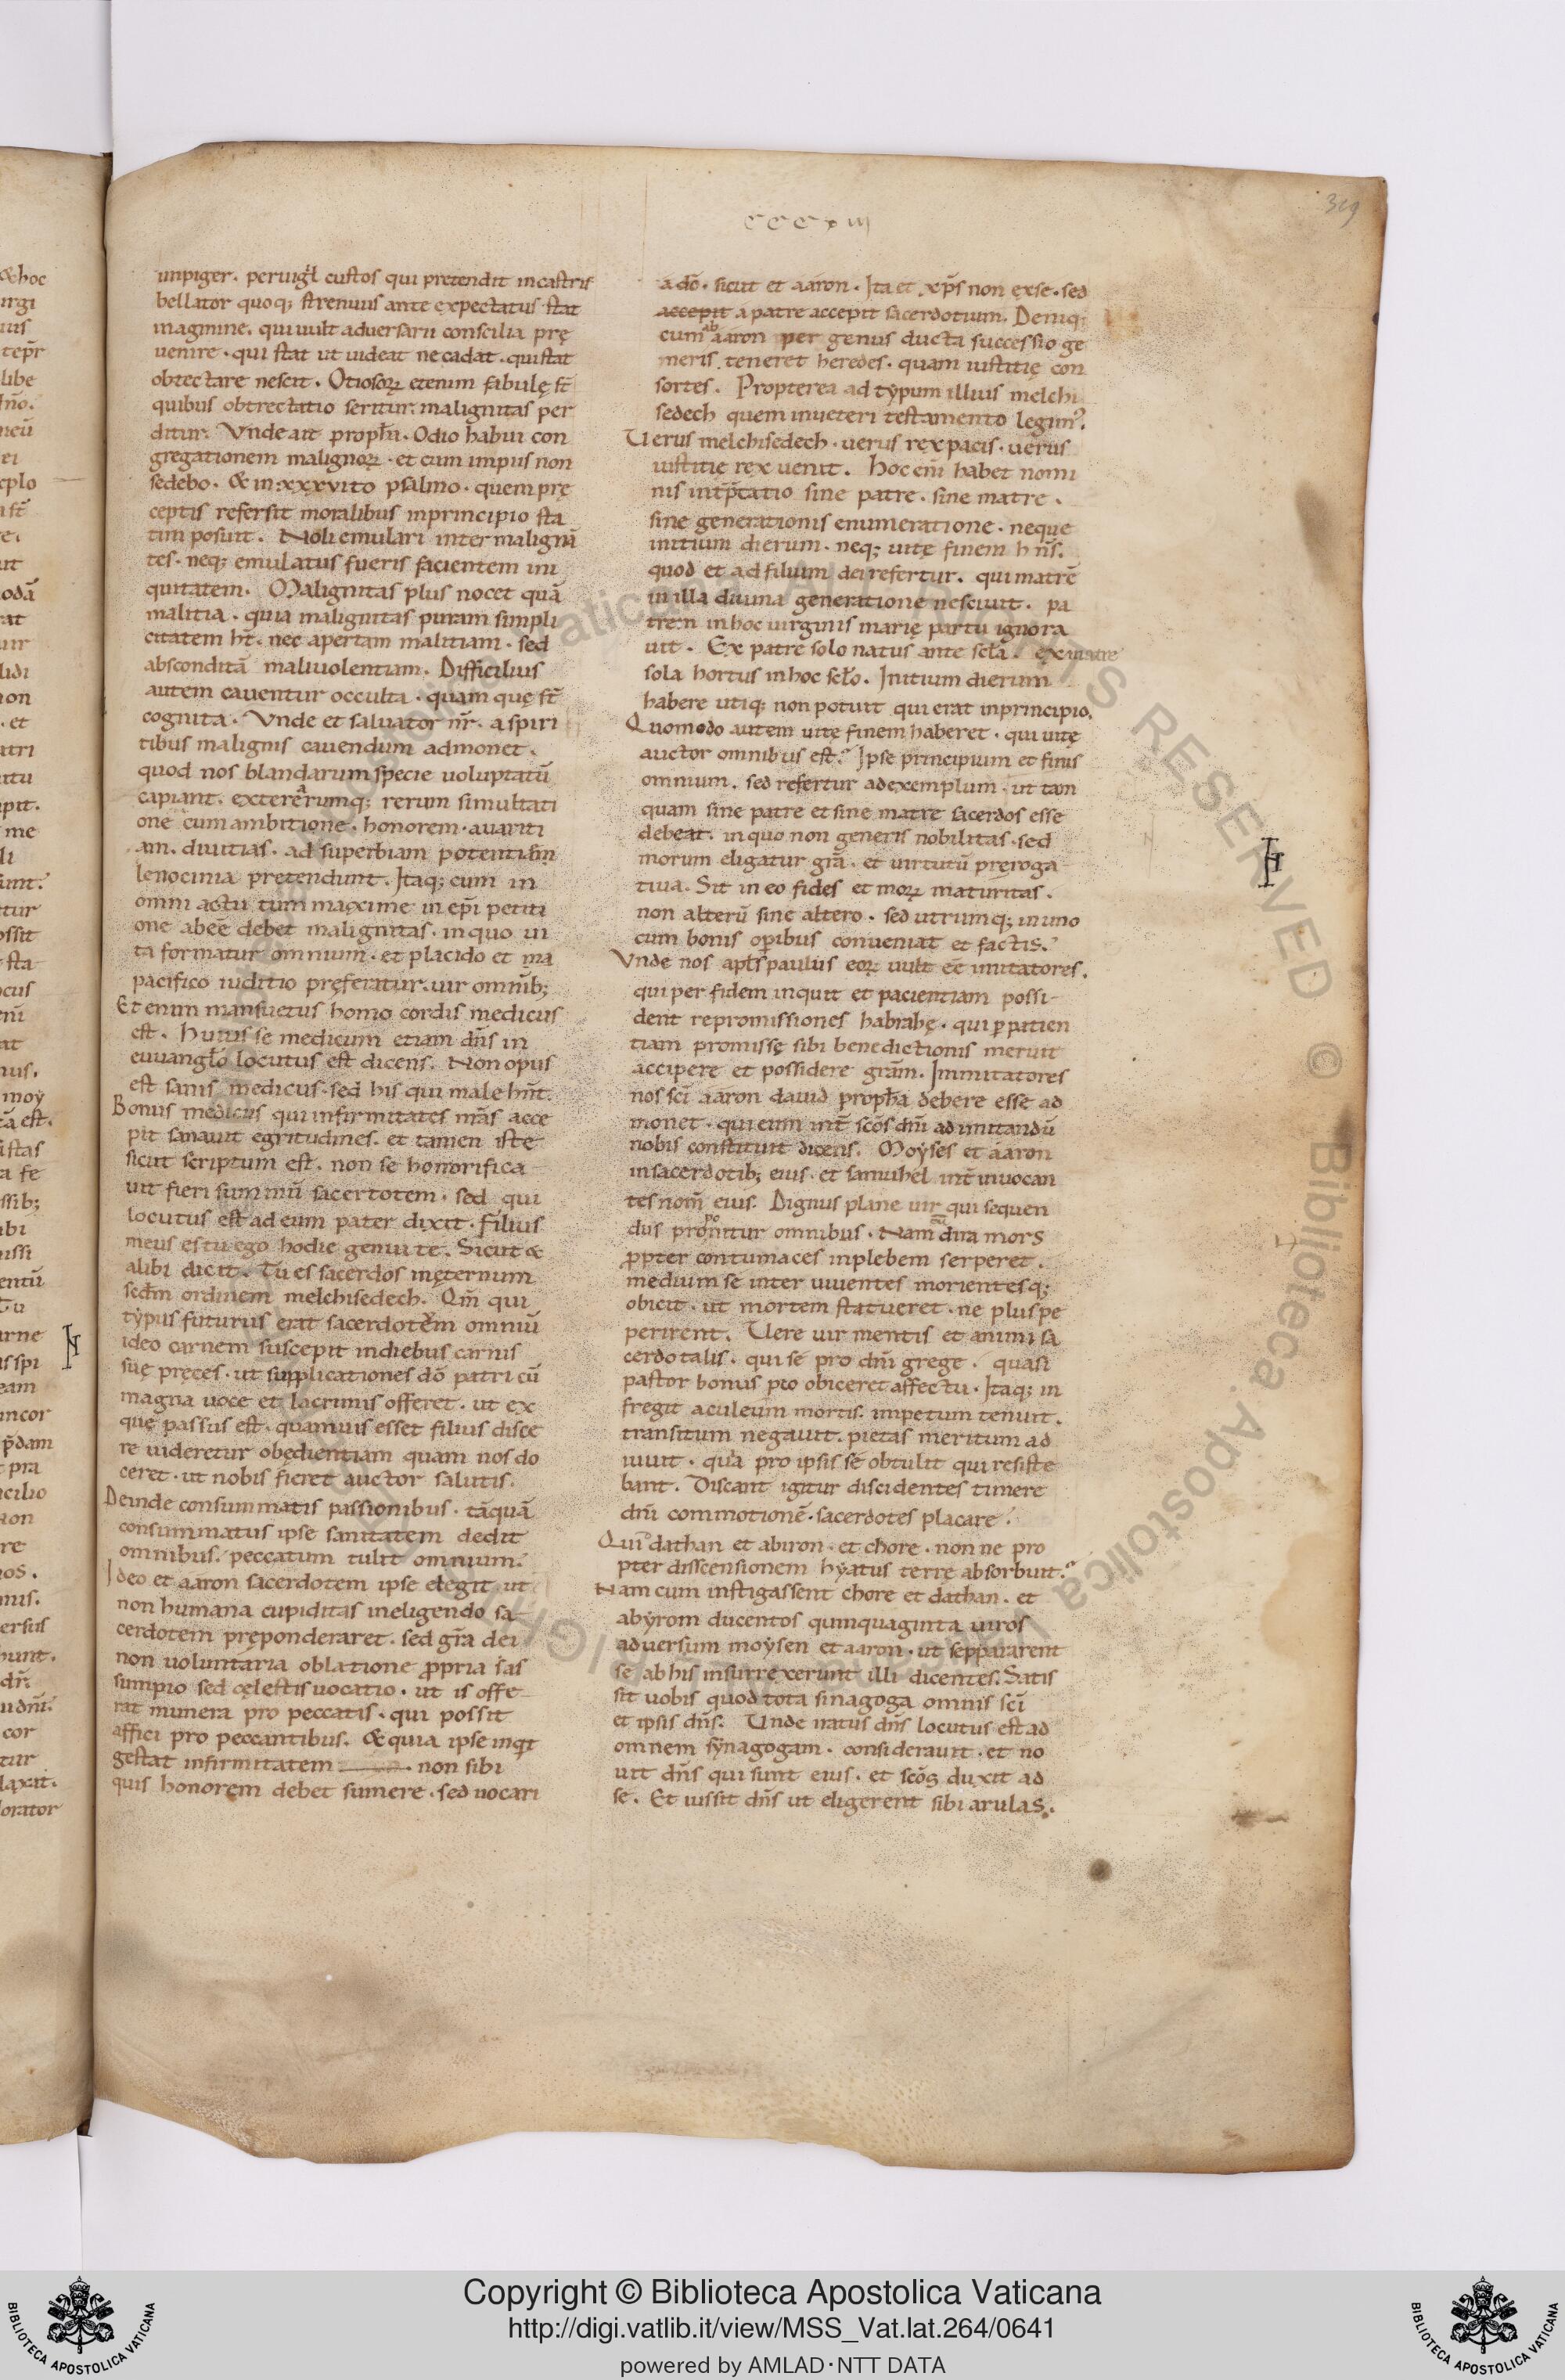 319
cccxiii
impiger. peruigil custos qui pretendit in castris
bellator quoq; strenuus ante expectatus stat
in agmine. qui uult aduersarii conscilia prę
uenire. qui stat ut uideat ne cadat. qui stat
obtectare nescit. Otiosoꝝ etenim fabulę st̄
quibus obtrectatio seritur. malignitas per
ditur. Vnde ait proph̄a. Odio habui con
gregationem malignoꝝ. et cum impiis non
sedebo. & in xxxvito psalmo. quem prę
ceptis refersit moralibus inprincipio sta
tim posuit. Noli emulari inter malignā
tes. neq; emulatus fueris facientem ini
quitatem. Malignitas plus nocet quā
malitia. quia malignitas puram simpli
citatem ht̄. nec apertam malitiam. sed
absconditā maliuolentiam. Difficilius
autem cauentur occulta. quam quę st̄
cognita. Vnde et saluator nr̄. a spiri
tibus malignis cauendum admonet.
quod nos blandarum specie uoluptatū
capiant. exterearumq; rerum simultati
one cum ambitione. honorem. auariti
am. diuitias. ad superbiam potentiam
lenocinia pretendunt. Itaq; cum in
omni actu tum maxime in ep̄i petiti
one abeē debet malignitas. in quo ui
ta formatur omnium. et placido et ma
pacifico iuditio pręferatur. uir omnib;
Et enim mansuetus homo cordis medicus
est. Huius se medicum etiam dn̄s in
euuanglō locutus est dicens. Non opus
est sanis medicus. sed his qui male hn̄t.
Bonus medicus qui infirmitates nr̄as acce
pit sanauit egritudines. et tamen iste
sicut scriptum est. non se honorifica
uit fieri summū sacertotem. sed qui
locutus est ad eum pater dixit. Filius
meus es tu ego hodie genui te. Sicut &
alibi dicit. Tu es sacerdos inęternum
sedm̄ ordinem melchisedech. Qm̄ qui
typus futurus erat sacerdotem omniū
ideo carnem suscepit indiebus carnis
suę pręces. ut supplicationes dō patri cū
magna uoce et lacrimis offeret. ut ex
quę passus est. quamuis esset filius disce
re uideretur obędientiam quam nos do
ceret. ut nobis fieret auctor salutis.
Deinde consummatis passionibus. tāquā
consummatus ipse sanitatem dedit
omnibus. peccatum tulit omnium.
Ideo et aaron sacerdotem ipse elegit ut
non humana cupiditas ineligendo sa
cerdotem pręponderaret. sed gr̄a dei
non uoluntaria oblatione ꝓpria s̄as
sumpio sed cęlestis uocatio. ut is offe
rat munera pro peccatis. qui possit
affici pro peccantibus. & quia ipse inqͥt
gestat infirmitatem non sibi
quis honorem debet sumere. sed uocari
a dō. sicut et aaron. Ita et xp̄s non exse. sed
accepit a patre accepit sacerdotium. Deniq;
cum ab aaron per genus ducta successio ge
neris teneret heredes. quam iustitię con
sortes. Propterea ad typum illius melchi
sedech quem inueteri testamento legim?.
Uerus melchisedech. uerus rex pacis. uerus
iustitię rex uenit. Hoc em̄ habet nomi
nis int̄p̄tatio sine patre. sine matre.
sine generationis enumeratione. neque
initium dierum. neq; uitę finem hn̄s.
quod et ad filium dei refertur. qui matrē
in illa diuina generatione nesciuit. pa
trem in hoc uirginis marię partu ignora
uit. Ex patre solo natus ante sclā. ex matre
sola hortus inhoc sclō. Initium dierum
habere utiq; non potuit qui erat inprincipio.
Quomodo autem uitę finem haberet. qui uitę
auctor omnibus est? Ipse principium et finis
omnium. sed refertur ad exemplum. ut tam
quam sine patre et sine matre sacerdos esse
debeat. in quo non generis nobilitas. sed
morum eligatur grā. et uirtutū pręroga
tiua. Sit in eo fides et moꝝ maturitas.
non alterū sine altero. sed utrumq; in uno
cum bonis oꝑibus conueniat et factis.
Vnde nos apl̄s paulus eoꝝ uult eē imitatores.
qui per fidem inquit et pacientiam possi-
dent repromissiones habrahę. qui ꝑ patien
tiam promissę sibi benedictionis meruit
accipere et possidere grām. Immitatores
nos sc̄i aaron dauid proph̄a debere esse ad
monet. qui eum int̄ scōs dn̄i ad imitandū
nobis constituit dicens. Moyses et aaron
in sacerdotib; eius. et samuhel int̄ inuocan
tes nom̄ eius. Dignus plane uir qui sequen
dus proponitur omnibus. Nam cum dira mors
ꝓpter contumaces inplebem serperet.
medium se inter uiuentes morientesq;
obicit. ut mortem statueret. ne plus pe
perirent. Uere uir mentis et animi sa
cerdotalis. qui se pro dn̄i grege. quasi
pastor bonus pio obiceret affectu. Itaq; in
fregit aculeum mortis. impetum tenuit.
transitum negauit. pietas meritum ad
iuuit. quia pro ipsis se obtulit qui resiste
bant. Discant igitur discidentes timere
dn̄i commotionē. sacerdotes placare.
Quid dathan et abiron. et chore. non ne pro
pter disscensionem hyatus terre absorbuit?
Nam cum instigassent chore et dathan. et
abyrom ducentos quinquaginta uiros
aduersum moysen et aaron. ut seppararent
se ab his insurrexerunt illi dicentes. Satis
sit uobis quod tota sinagoga omnis sc̄i
et ipsis dn̄s. Unde iratus dn̄s locutus est ad
omnem synagogam. considerauit. et no
uit dn̄s qui sunt eius. et scōs duxit ad
se. Et iussit dn̄s ut eligerent sibi arulas.
Copyright © Biblioteca Apostolica Vaticana
http://digi.vatlib.it/view/MSS_Vat.lat.264/0641
powered by AMLAD·NTT DATA
BIBLIOTECA APOSTOLICA VATICANA
BIBLIOTECA APOSTOLICA VATICANA